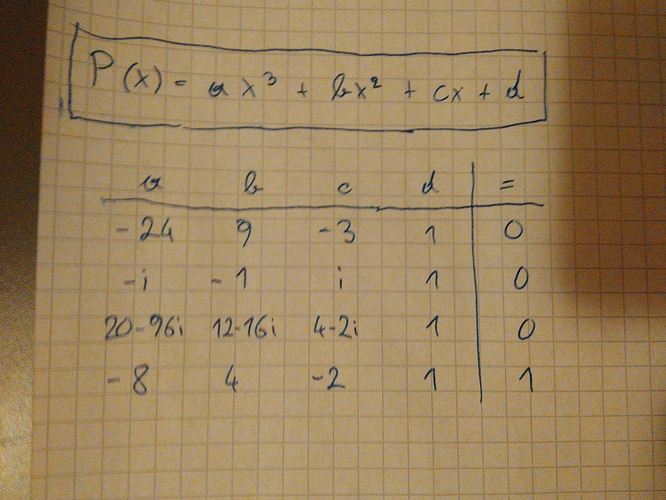 P(x) = ax³ + bx² + cx + d
a b c d =
-24 9 -3 1 0
-i -1 i 1 0
20-96i 12-16i 4-2i 1 0
-8 4 -2 1 1